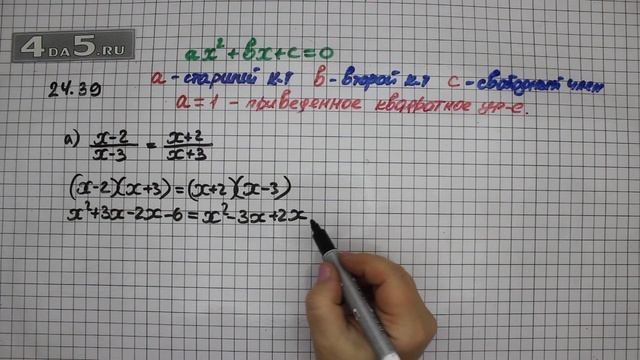 4DA5.RU
ax²+вx+c=0
24.39
a - старший к.т в - второй к.т с - свободный член
a=1 - приведенное квадратное ур-е.
а) x-2/x-3 = x+2/x+3
(x-2)(x+3)=(x+2)(x-3)
x²+3x-2x-6=x²-3x+2x